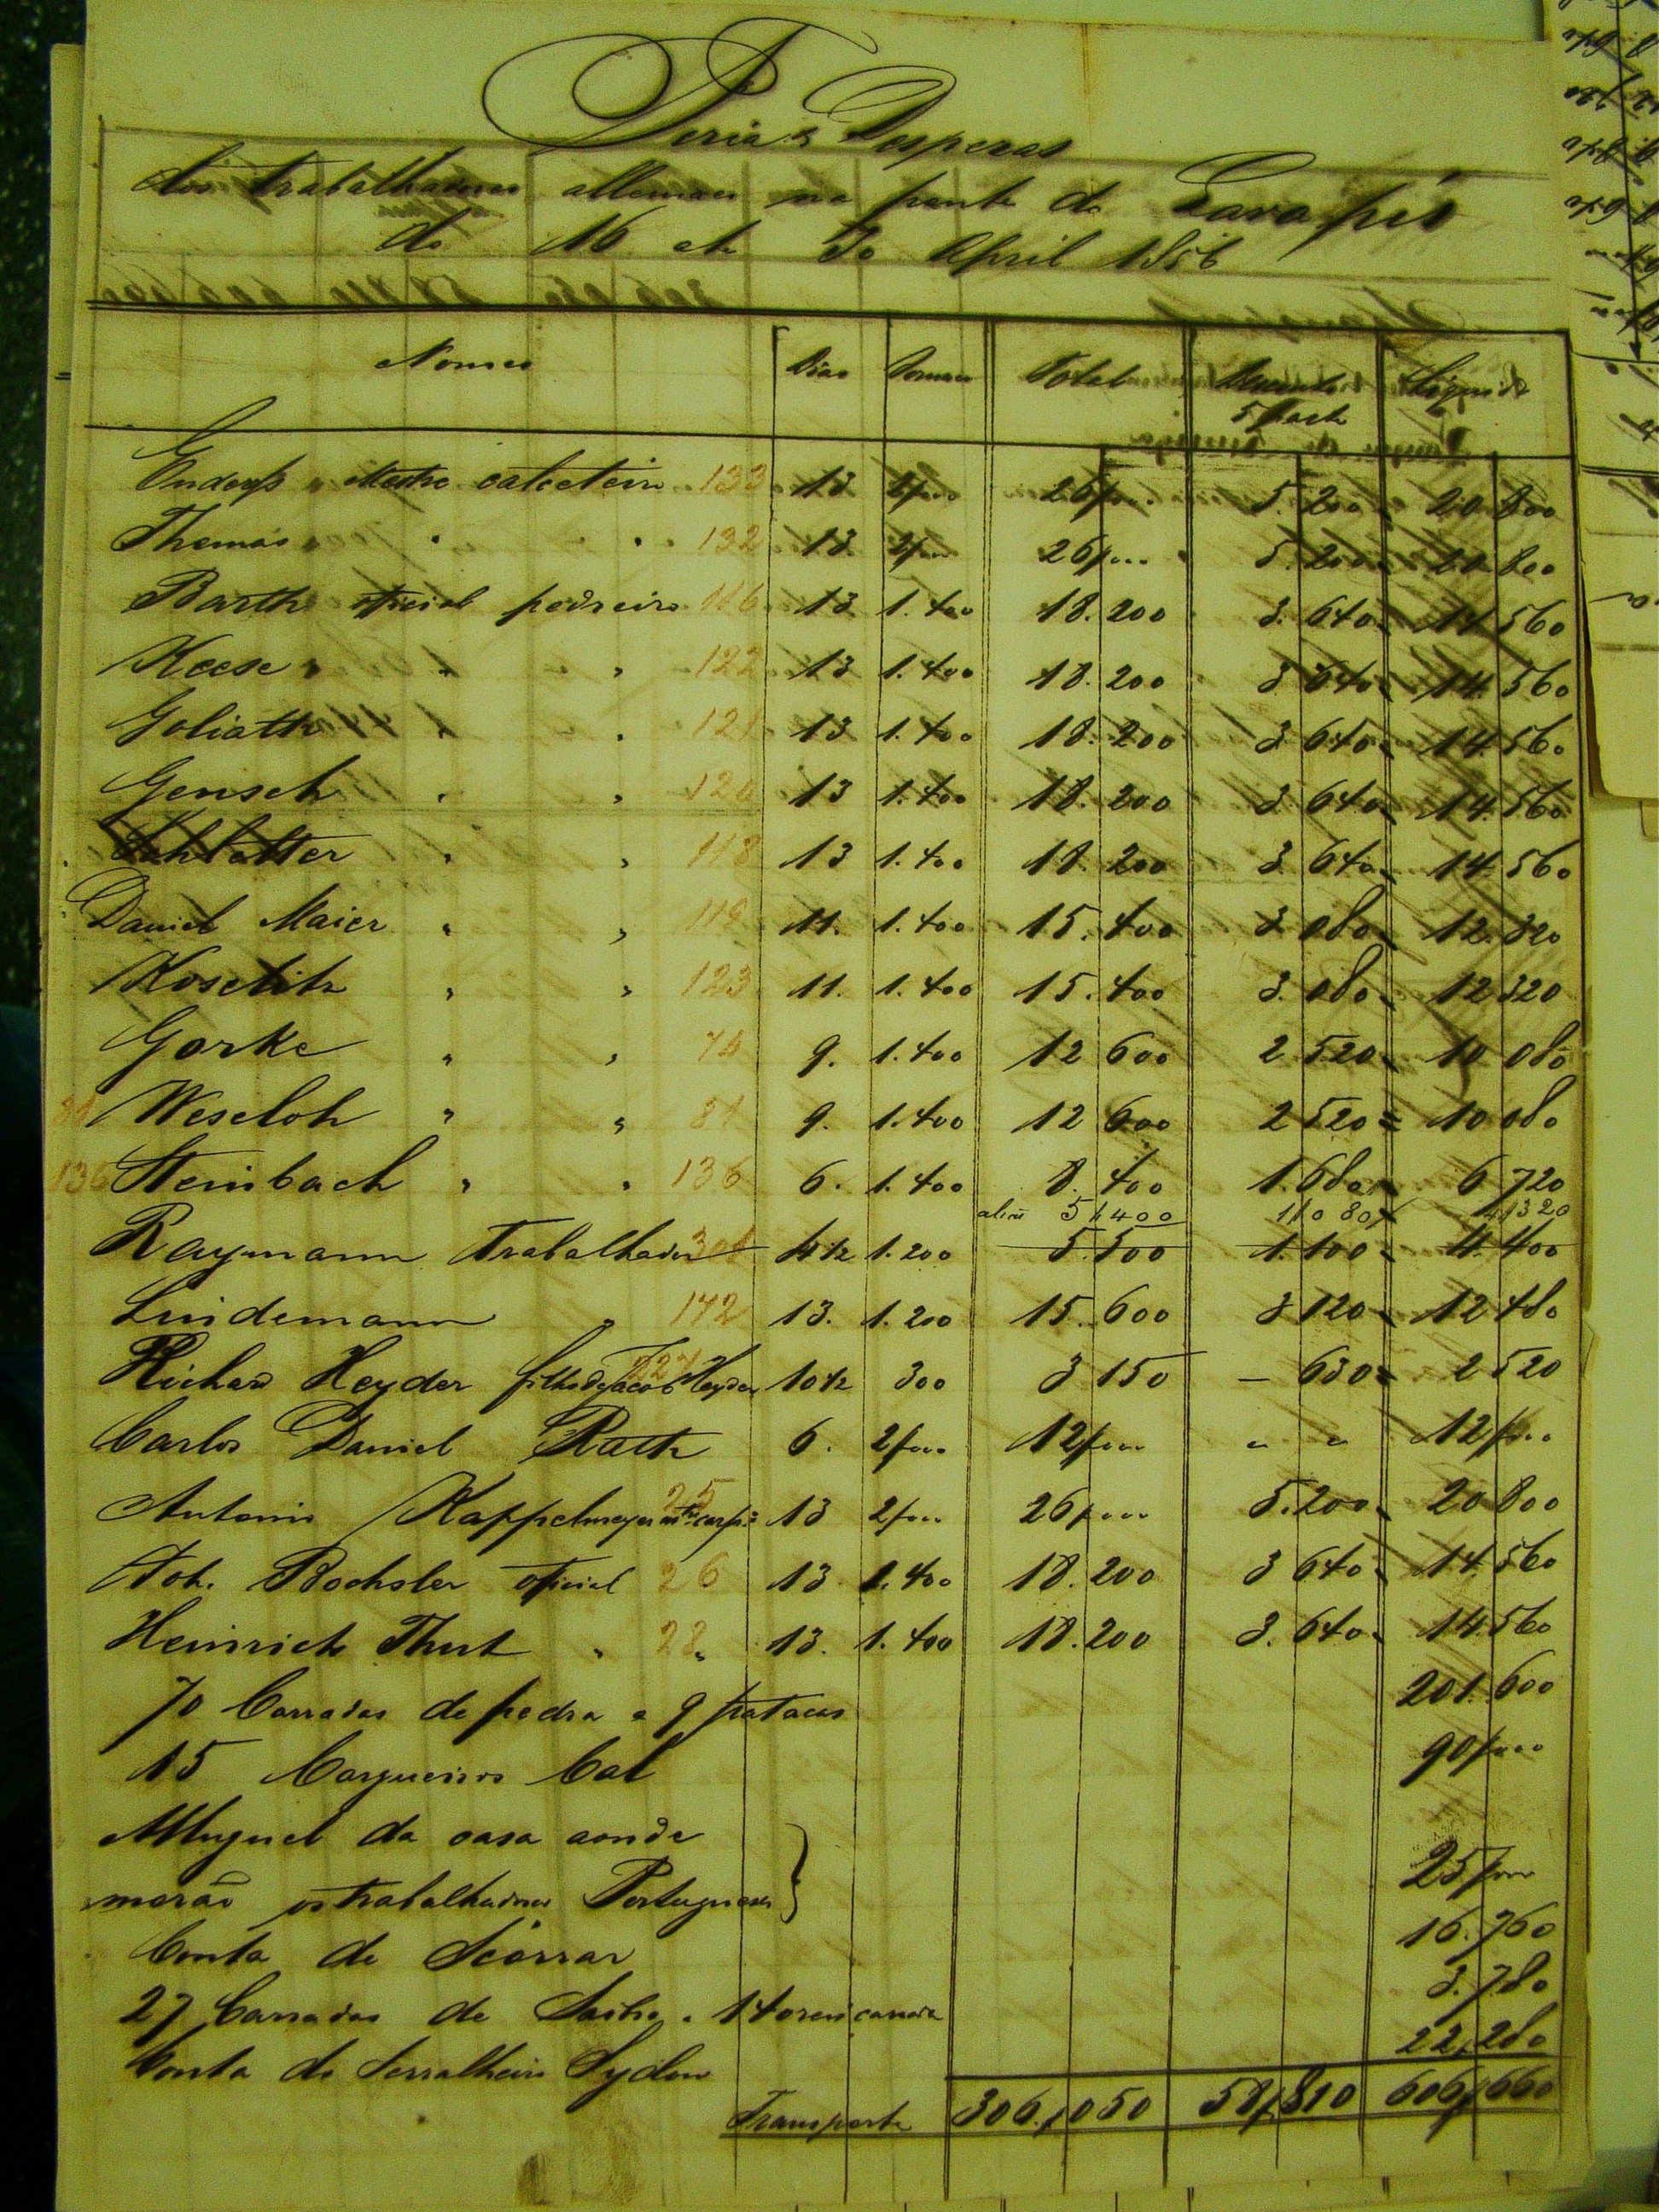 Feria e Despezas
dos trabalhadores allemaes na ponte do
de 16 ate 30 April 1856
Nomes Dias Total Desconto Liquido
5 parte
Mestre calceteiro 133 13 2/000 26/000 5.200 20 800
Thomas " " 132 13 2/000 26/000 5.200 20 800
Barth oficial pedreiro 116 13 1.400 18.200 3.640 14 560
Keese " " 122 13 1.400 18.200 3 640 14. 560
Goliath " " 121 13 1.400 18.200 3 640 14.560
Gensch " " 120 13 1.400 18.200 3.640 14.560
Schlatter " " 118 13 1.400 18.200 3.640 14.560
Daniel Maier " " 119 11. 1.400 15.400 3 080 12.320
Koschitz " " 123 11. 1.400 15.400 3.080 12 320
Gorke " " 74 9. 1.400 12 600 2 520 10 080
Weseloh " " 84 9. 1.400 12 600 2 520 10 080
136 Steinbach " " 136 6. 1.400 8.400 1.680 6 720
5/400 1/080 4/320
Raymann Trabalhador 4 1/2 1.200 5.500 1.100 4.400
Lindemann " 142 13. 1.200 15.600 3 120 12 480
Richard Heyder filho de Jacob Heyder 10 1/2 300 3 150 – 630 2 520
Carlos Daniel Rath 6. 2/000 12/000 " " 12/000
Antonio Kappelmeyer mtre carpo 25 13 2/000 26/000 5.200 20 800
Joh. Bochsler oficial 26 13 1.400 18.200 3 640 14.560
Heinrich Thut " 28 " 13. 1.400 18.200 3.640 14.560
70 Carradas de pedra a 9 patacas 201.600
15 Cargueiros Cal 90/000
Alluguel da casa aonde
morão os trabalhadores Portuguezes } 25/000
Conta de 16.760
27 Carradas de Saibro a 140 reis carrada 3.780
Conta do Serralheiro 22,280
Transporte 306,050 58,810 606,660